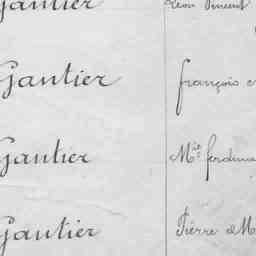 Gautier Léon Vincent
Gautier françois
Gautier Mie ferdinan
Gautier Pierre